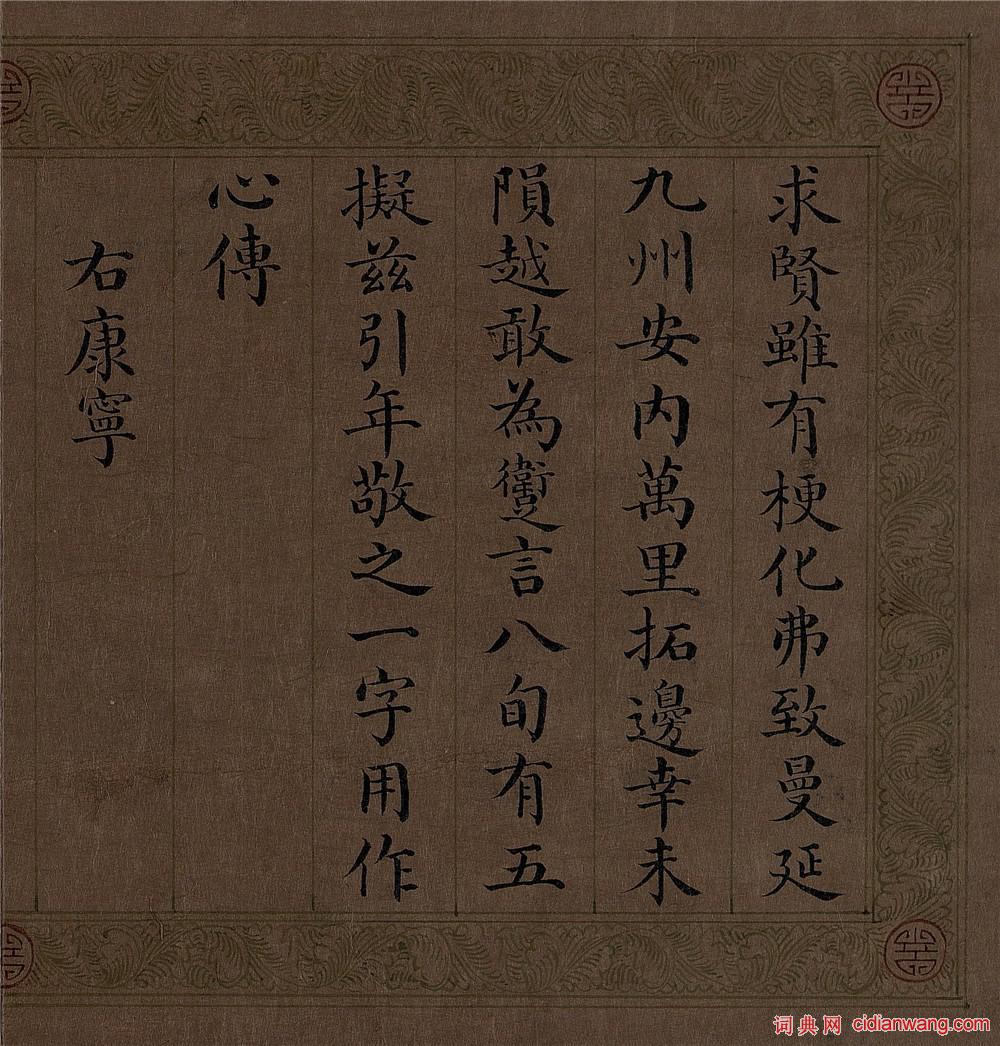 求賢雖有梗化弗致曼延
九州安內萬里拓邊幸未
隕越敢為躗言八旬有五
擬茲引年敬之一字用作
心傳
右康寧
词典网 cidianwang.com